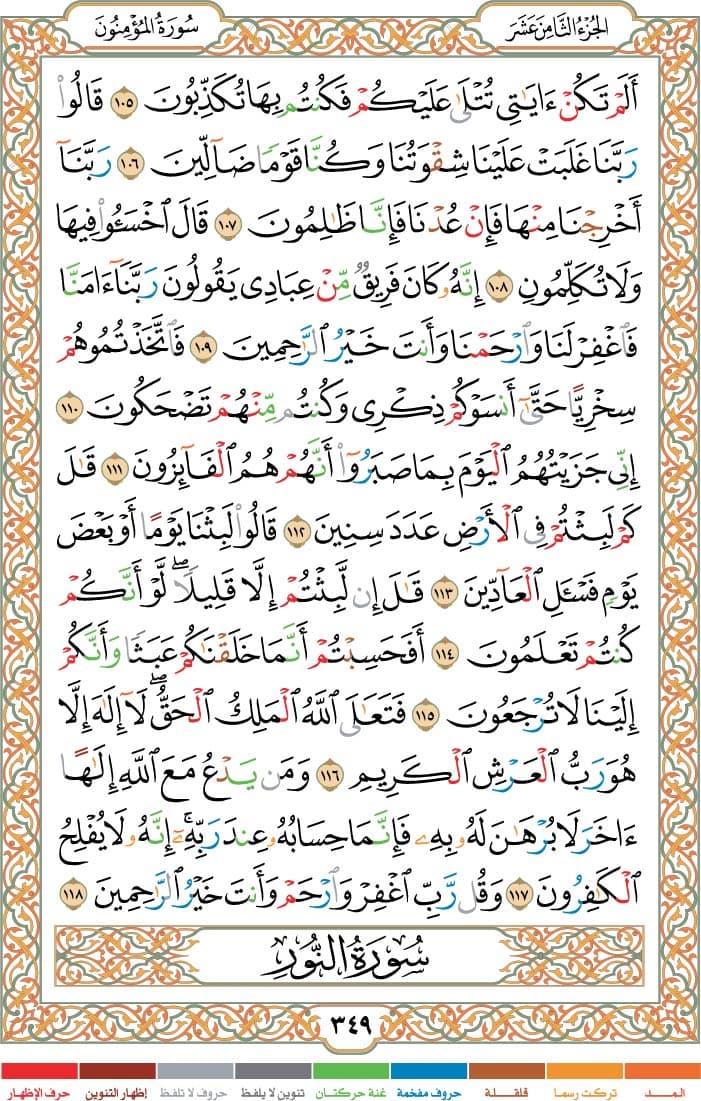 سُورَةُ المُؤْمِنُونَ
الجُزْءُ الثَّامِنَ عَشَرَ
أَلَمْ تَكُنْ ءَايَـٰتِى تُتْلَىٰ عَلَيْكُمْ فَكُنتُم بِهَا تُكَذِّبُونَ ١٠٥ قَالُوا۟
رَبَّنَا غَلَبَتْ عَلَيْنَا شِقْوَتُنَا وَكُنَّا قَوْمًا ضَآلِّينَ ١٠٦ رَبَّنَآ
أَخْرِجْنَا مِنْهَا فَإِنْ عُدْنَا فَإِنَّا ظَـٰلِمُونَ ١٠٧ قَالَ ٱخْسَـُٔوا۟ فِيهَا
وَلَا تُكَلِّمُونِ ١٠٨ إِنَّهُۥ كَانَ فَرِيقٌ مِّنْ عِبَادِى يَقُولُونَ رَبَّنَآ ءَامَنَّا
فَٱغْفِرْ لَنَا وَٱرْحَمْنَا وَأَنتَ خَيْرُ ٱلرَّٰحِمِينَ ١٠٩ فَٱتَّخَذْتُمُوهُمْ
سِخْرِيًّا حَتَّىٰٓ أَنسَوْكُمْ ذِكْرِى وَكُنتُم مِّنْهُمْ تَضْحَكُونَ ١١٠
إِنِّى جَزَيْتُهُمُ ٱلْيَوْمَ بِمَا صَبَرُوٓا۟ أَنَّهُمْ هُمُ ٱلْفَآئِزُونَ ١١١ قَـٰلَ
كَمْ لَبِثْتُمْ فِى ٱلْأَرْضِ عَدَدَ سِنِينَ ١١٢ قَالُوا۟ لَبِثْنَا يَوْمًا أَوْ بَعْضَ
يَوْمٍ فَسْـَٔلِ ٱلْعَآدِّينَ ١١٣ قَـٰلَ إِن لَّبِثْتُمْ إِلَّا قَلِيلًا ۖ لَّوْ أَنَّكُمْ
كُنتُمْ تَعْلَمُونَ ١١٤ أَفَحَسِبْتُمْ أَنَّمَا خَلَقْنَـٰكُمْ عَبَثًا وَأَنَّكُمْ
إِلَيْنَا لَا تُرْجَعُونَ ١١٥ فَتَعَـٰلَى ٱللَّهُ ٱلْمَلِكُ ٱلْحَقُّ ۖ لَآ إِلَـٰهَ إِلَّا
هُوَ رَبُّ ٱلْعَرْشِ ٱلْكَرِيمِ ١١٦ وَمَن يَدْعُ مَعَ ٱللَّهِ إِلَـٰهًا
ءَاخَرَ لَا بُرْهَـٰنَ لَهُۥ بِهِۦ فَإِنَّمَا حِسَابُهُۥ عِندَ رَبِّهِۦٓ ۚ إِنَّهُۥ لَا يُفْلِحُ
ٱلْكَـٰفِرُونَ ١١٧ وَقُل رَّبِّ ٱغْفِرْ وَٱرْحَمْ وَأَنتَ خَيْرُ ٱلرَّٰحِمِينَ ١١٨
سُورَةُ النُّورِ
٣٤٩
المـــد
تركت رسما
قلقـلة
حروف مفخمة
غنة حركتان
تنوين لا يلفظ
حروف لا تلفظ
إظهار التنوين
حرف الإظهار